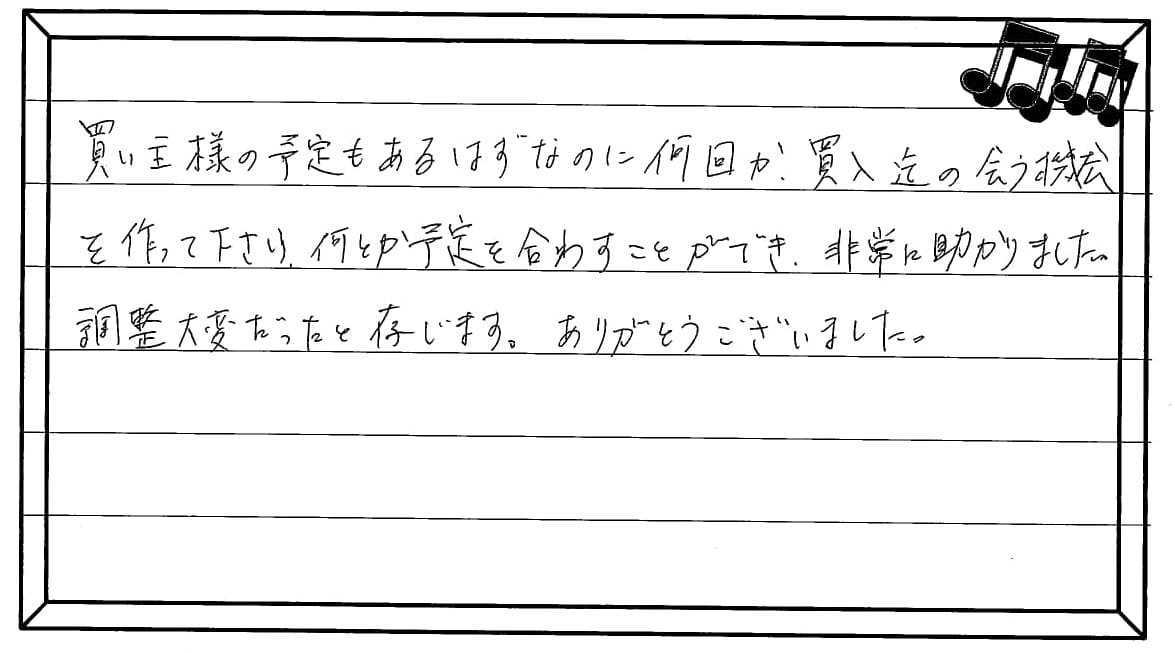 買い主様の予定もあるはずなのに何回か、買入迄の会う機会
を作って下さり、何とか予定を合わすことができ、非常に助かりました。
調整大変だったと存じます。ありがとうございました。